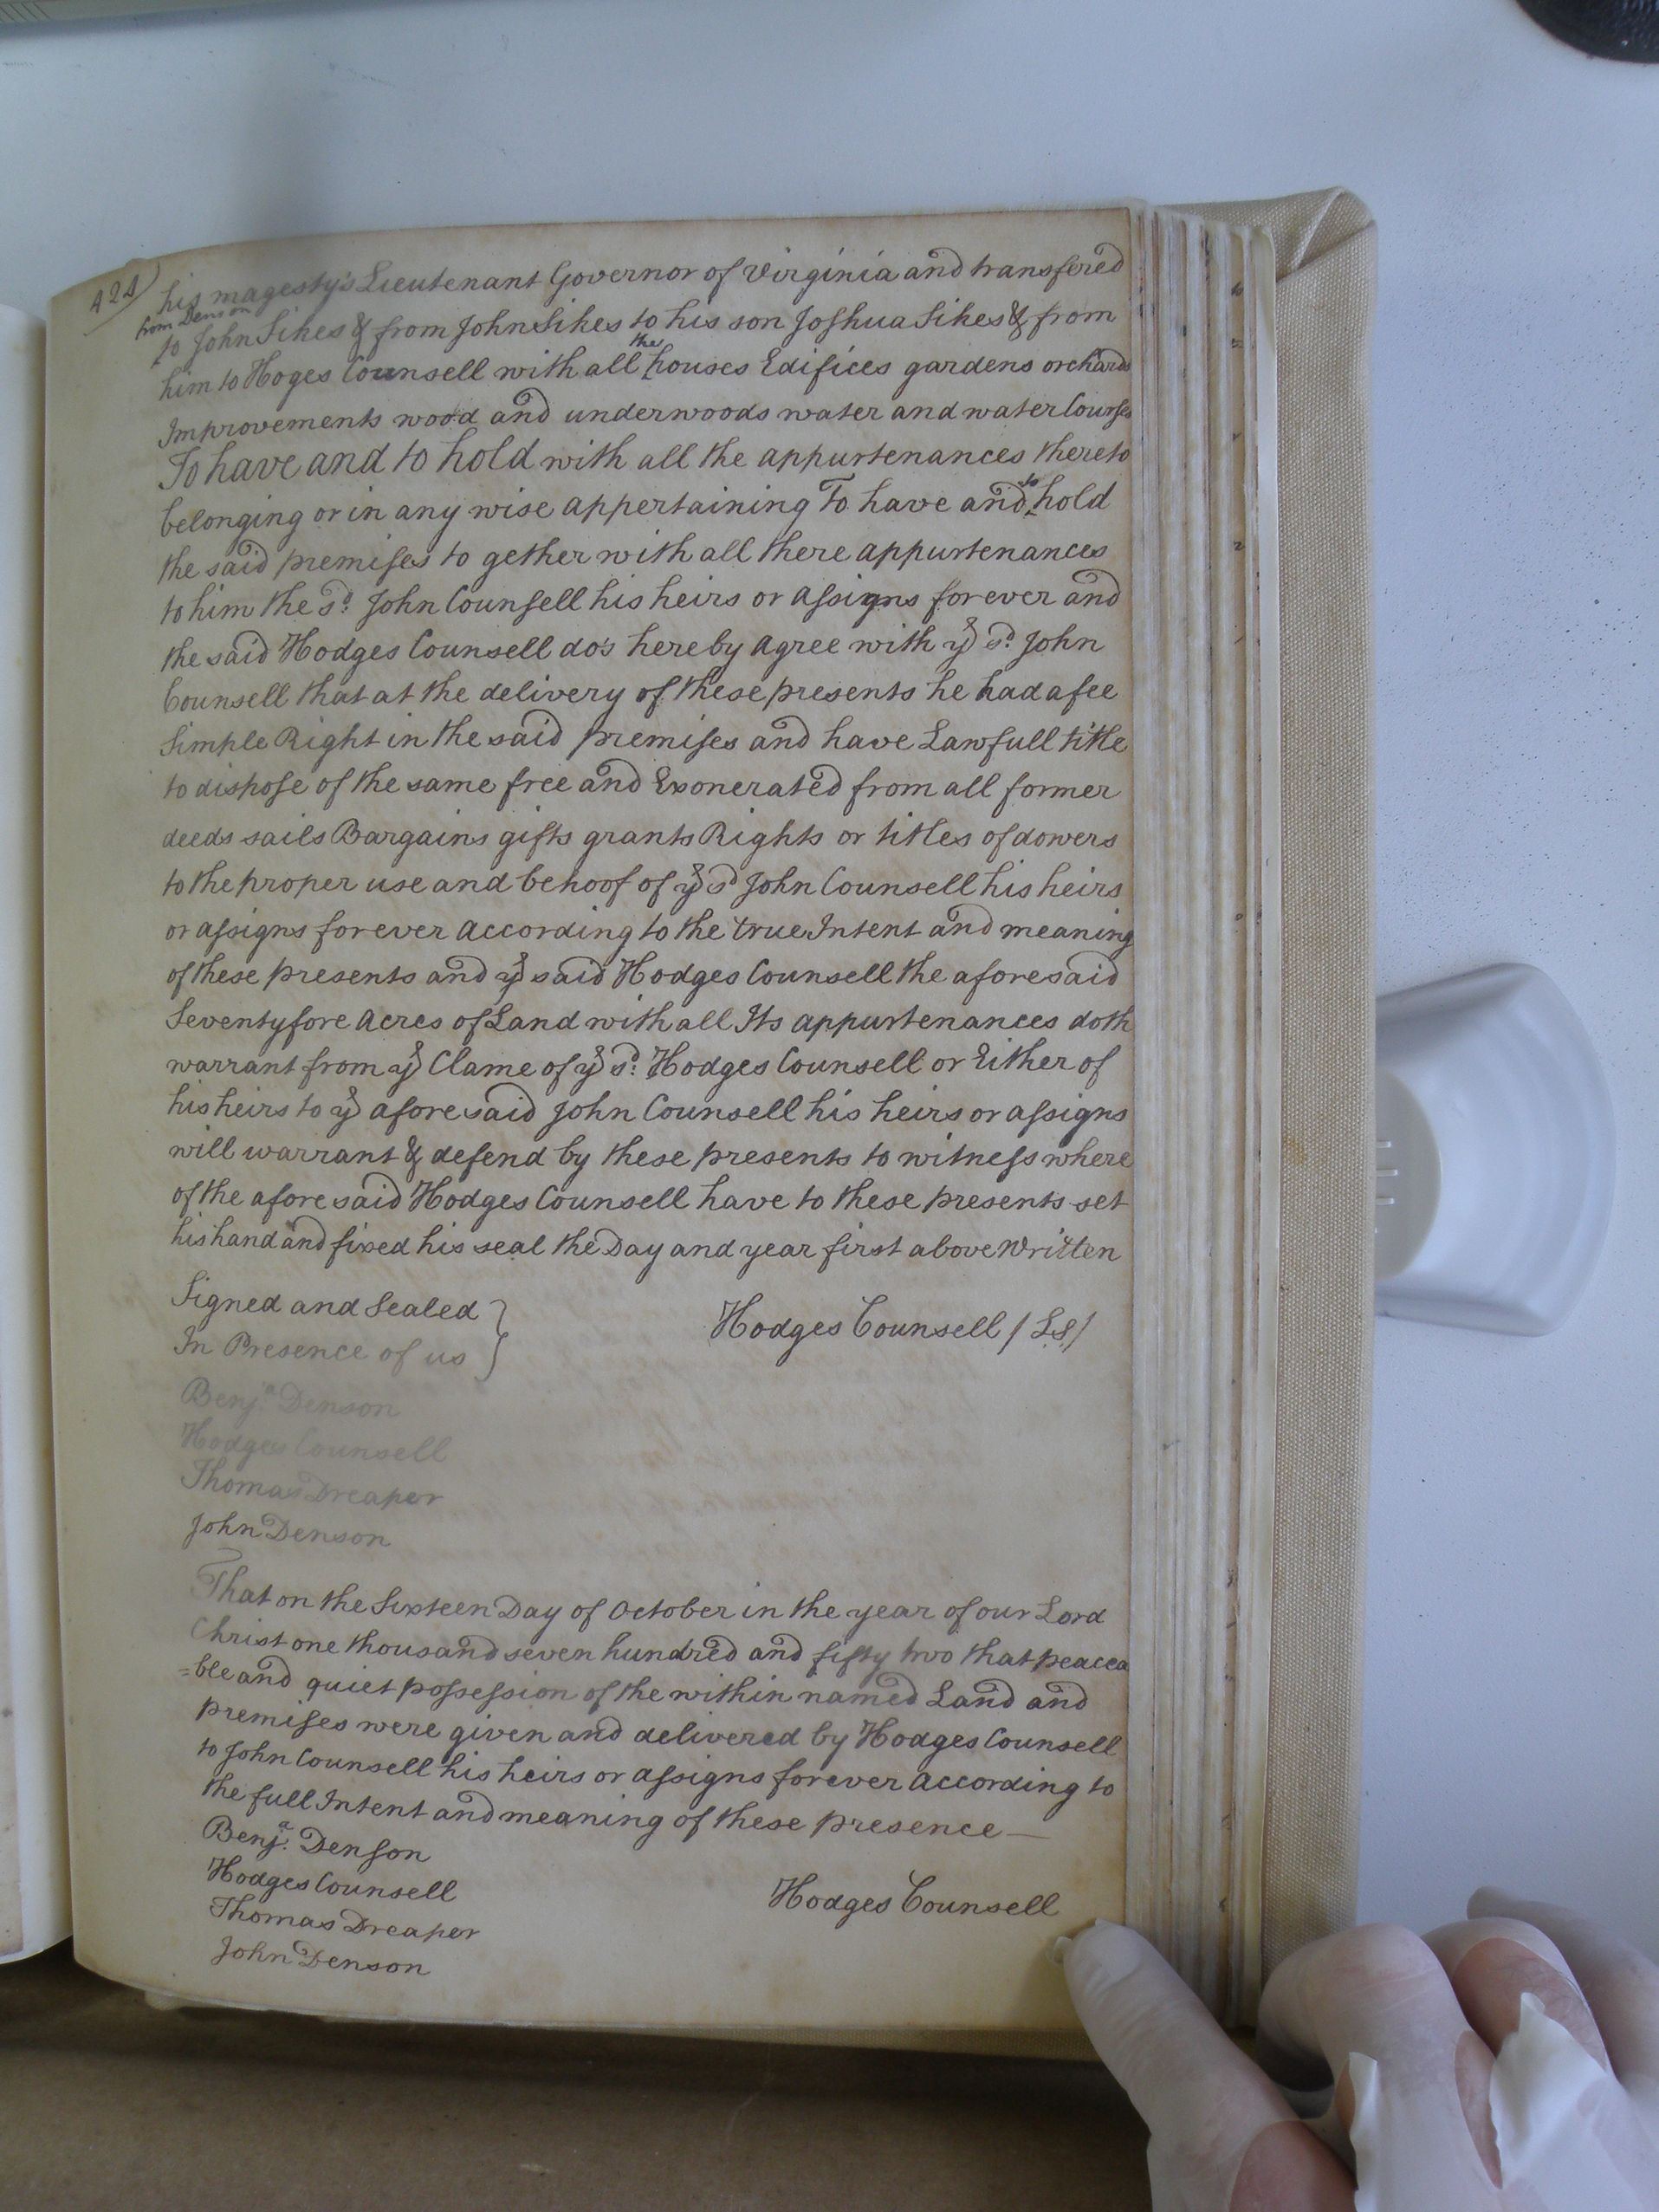 424
his magesty's Lieutenant Governor of Virginia and transfered
from Denson
to John Sikes & from John Sikes to his son Joshua Sikes & from
him to Hoges Counsell with all the houses Edifices gardens orchards
Improvements wood and underwoods water and water Courses
To have and to hold with all the appurtenances thereto
belonging or in any wise appertaining To have and to hold
the said premises to gether with all there appurtenances
to him the sd. John Counsell his heirs or assigns for ever and
the said Hodges Counsell do's hereby agree with ye sd. John
Counsell that at the delivery of these presents he had a fee
Simple Right in the said premises and have Lawfull title
to dispose of the same free and Exonerated from all former
deeds sails Bargains gifts grants Rights or titles of dowers
to the proper use and behoof of ye sd John Counsell his heirs
or assigns for ever according to the true Intent and meaning
of these presents and ye said Hodges Counsell the aforesaid
Seventy fore Acres of Land with all Its appurtenances doth
warrant from ye Clame of ye sd: Hodges Counsell or Either of
his heirs to ye afore said John Counsell his heirs or assigns
will warrant & defend by these presents to witness where
of the afore said Hodges Counsell have to these presents set
his hand and fixed his seal the Day and year first above Written
Signed and Sealed }
In Presence of us }
Hodges Counsell / LS /
Benja. Denson
Hodges Counsell
Thomas Dreaper
John Denson
That on the Sixteen Day of October in the year of our Lord
Christ one thousand seven hundred and fifty two that peacea
=ble and quiet possession of the within named Land and
premises were given and delivered by Hodges Counsell
to John Counsell his heirs or assigns for ever according to
the full Intent and meaning of these presence—
Benja. Denson
Hodges Counsell
Thomas Dreaper
John Denson
Hodges Counsell